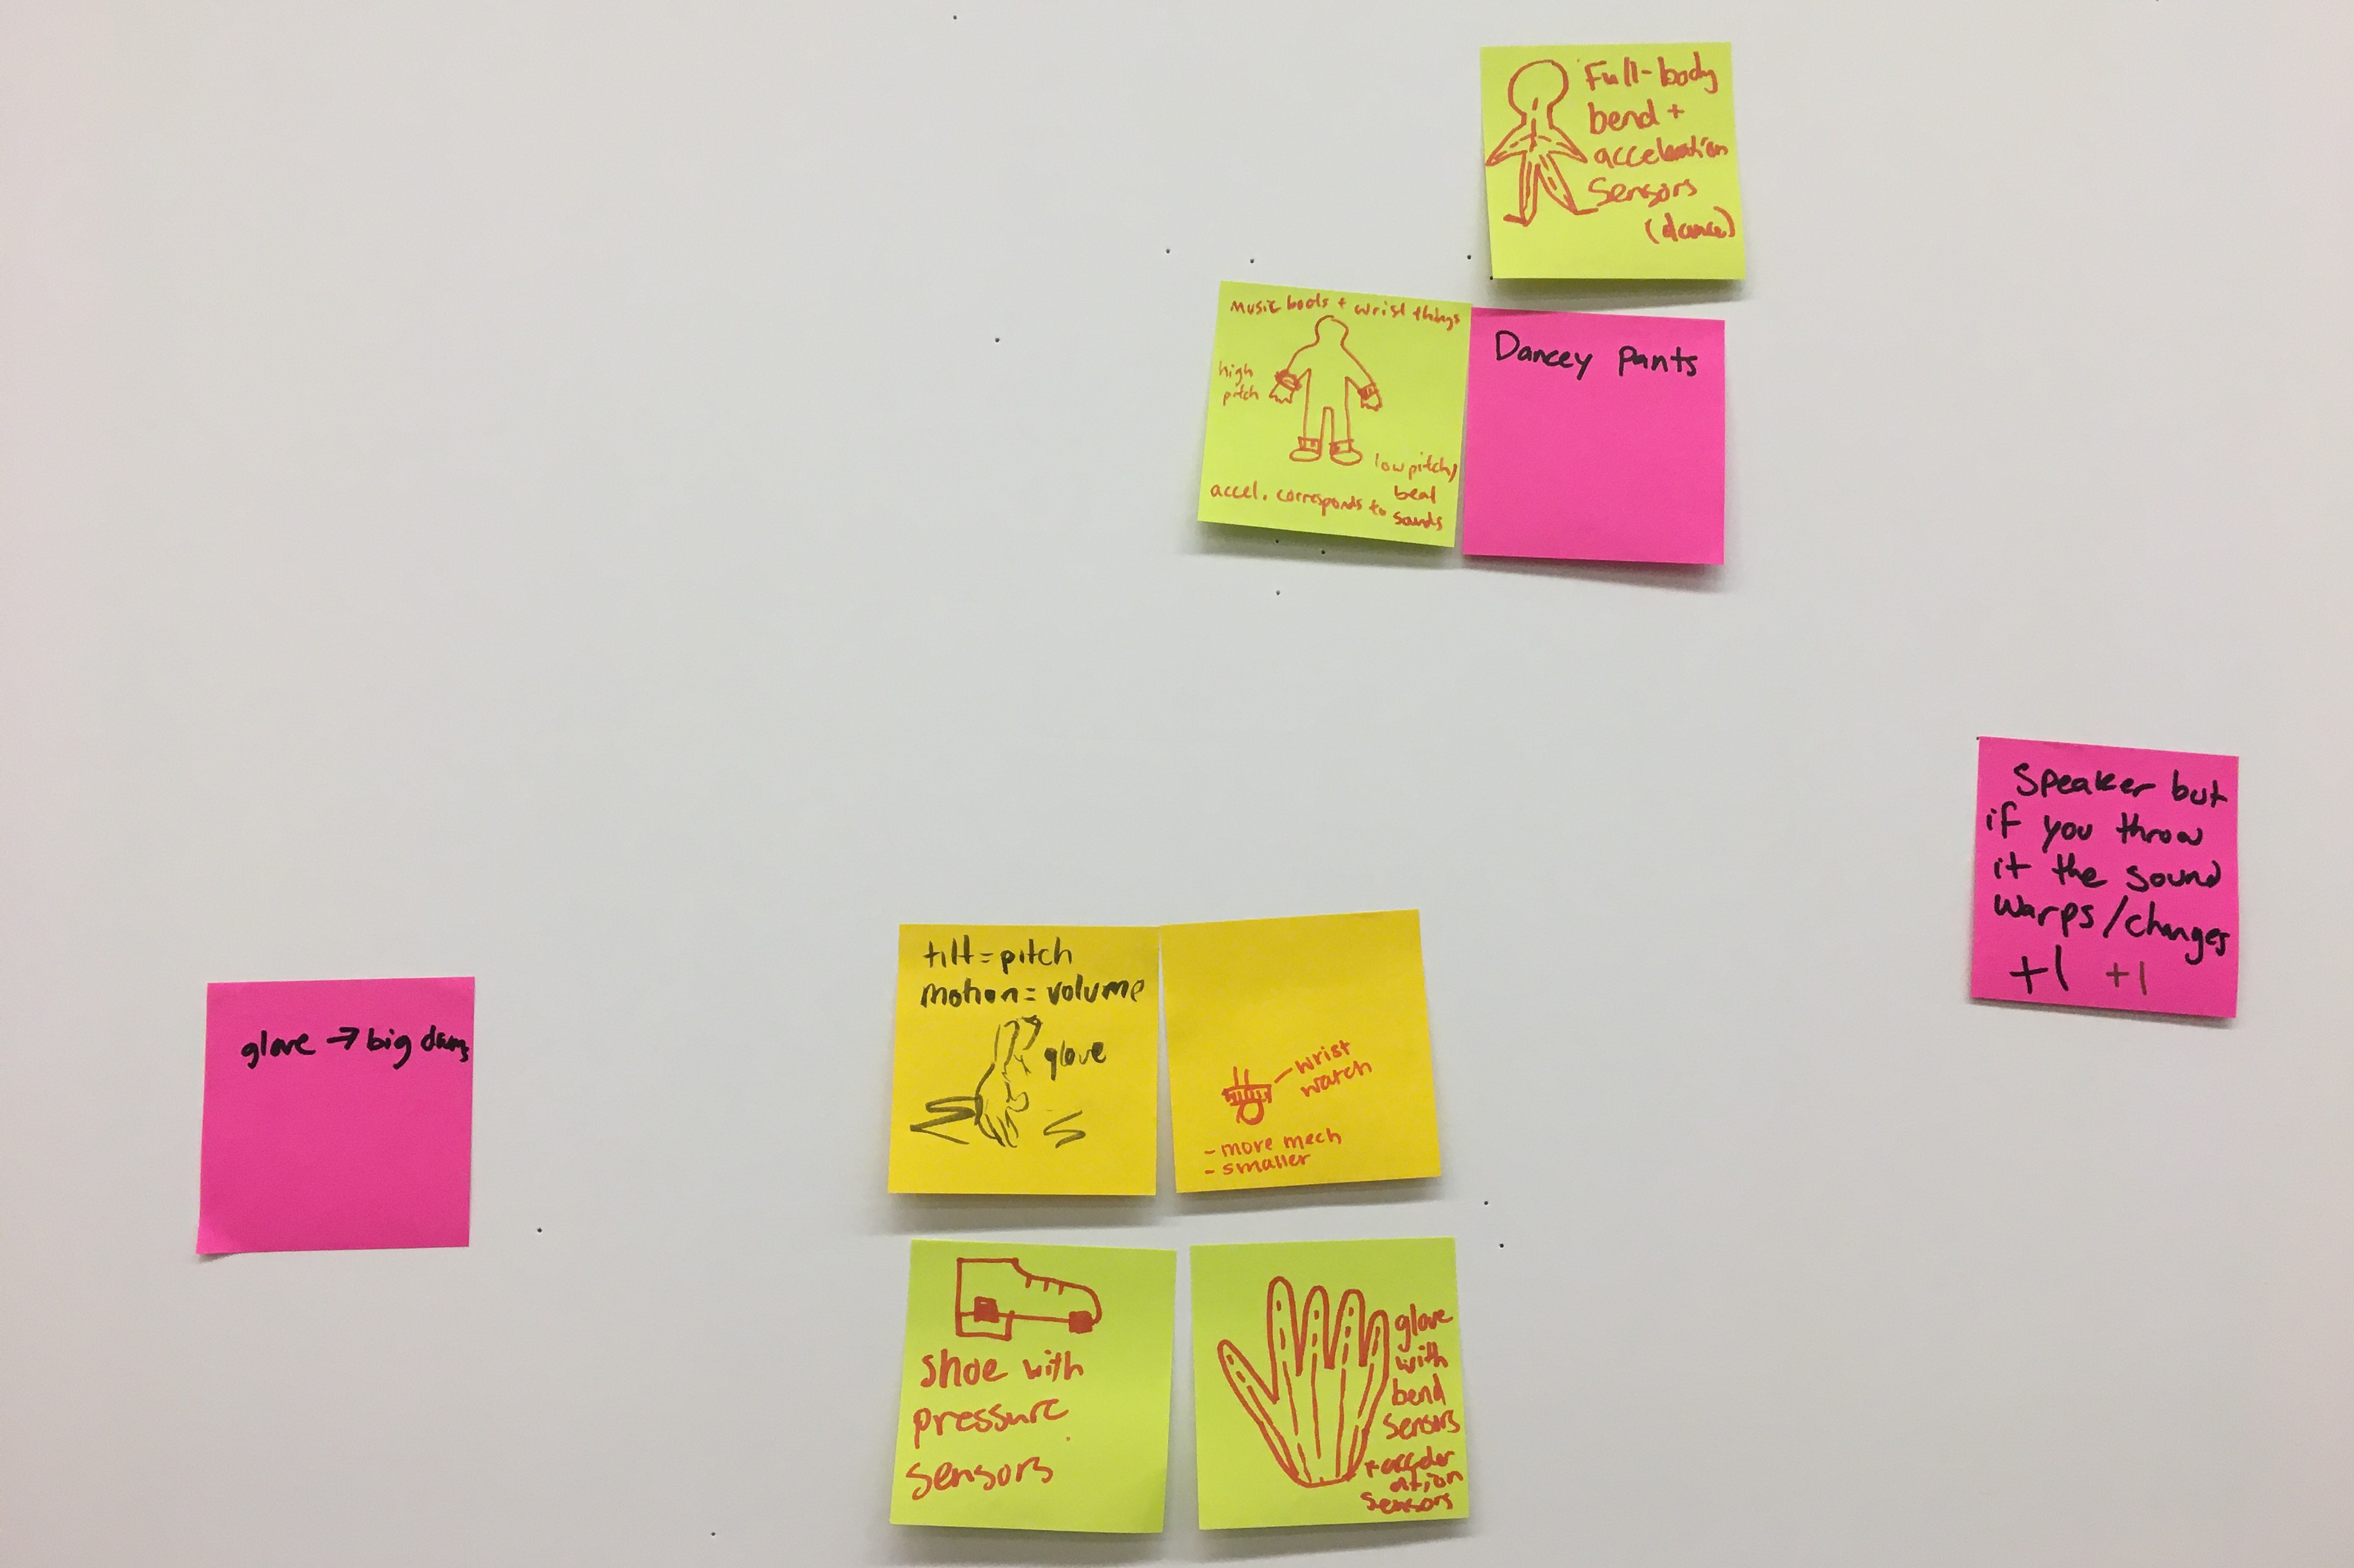 Full-body
bend +
acceleration
Sensors
(dance)
music boots + wrist things
high
pitch
low pitch,
beat
accel. corresponds to sounds
Dancey Pants
Speaker but
if you throw
it the sound
warps/changes
+1 +1
glove → big
tilt = pitch
motion = volume
glove
wrist
watch
- more mech
- smaller
shoe with
pressure
sensors
glove
with
bend
sensors
+ acceler
ation
sensors